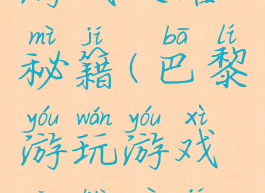 mì jí bā lí
秘籍(巴黎
yóu wán yóu xì
游玩游戏